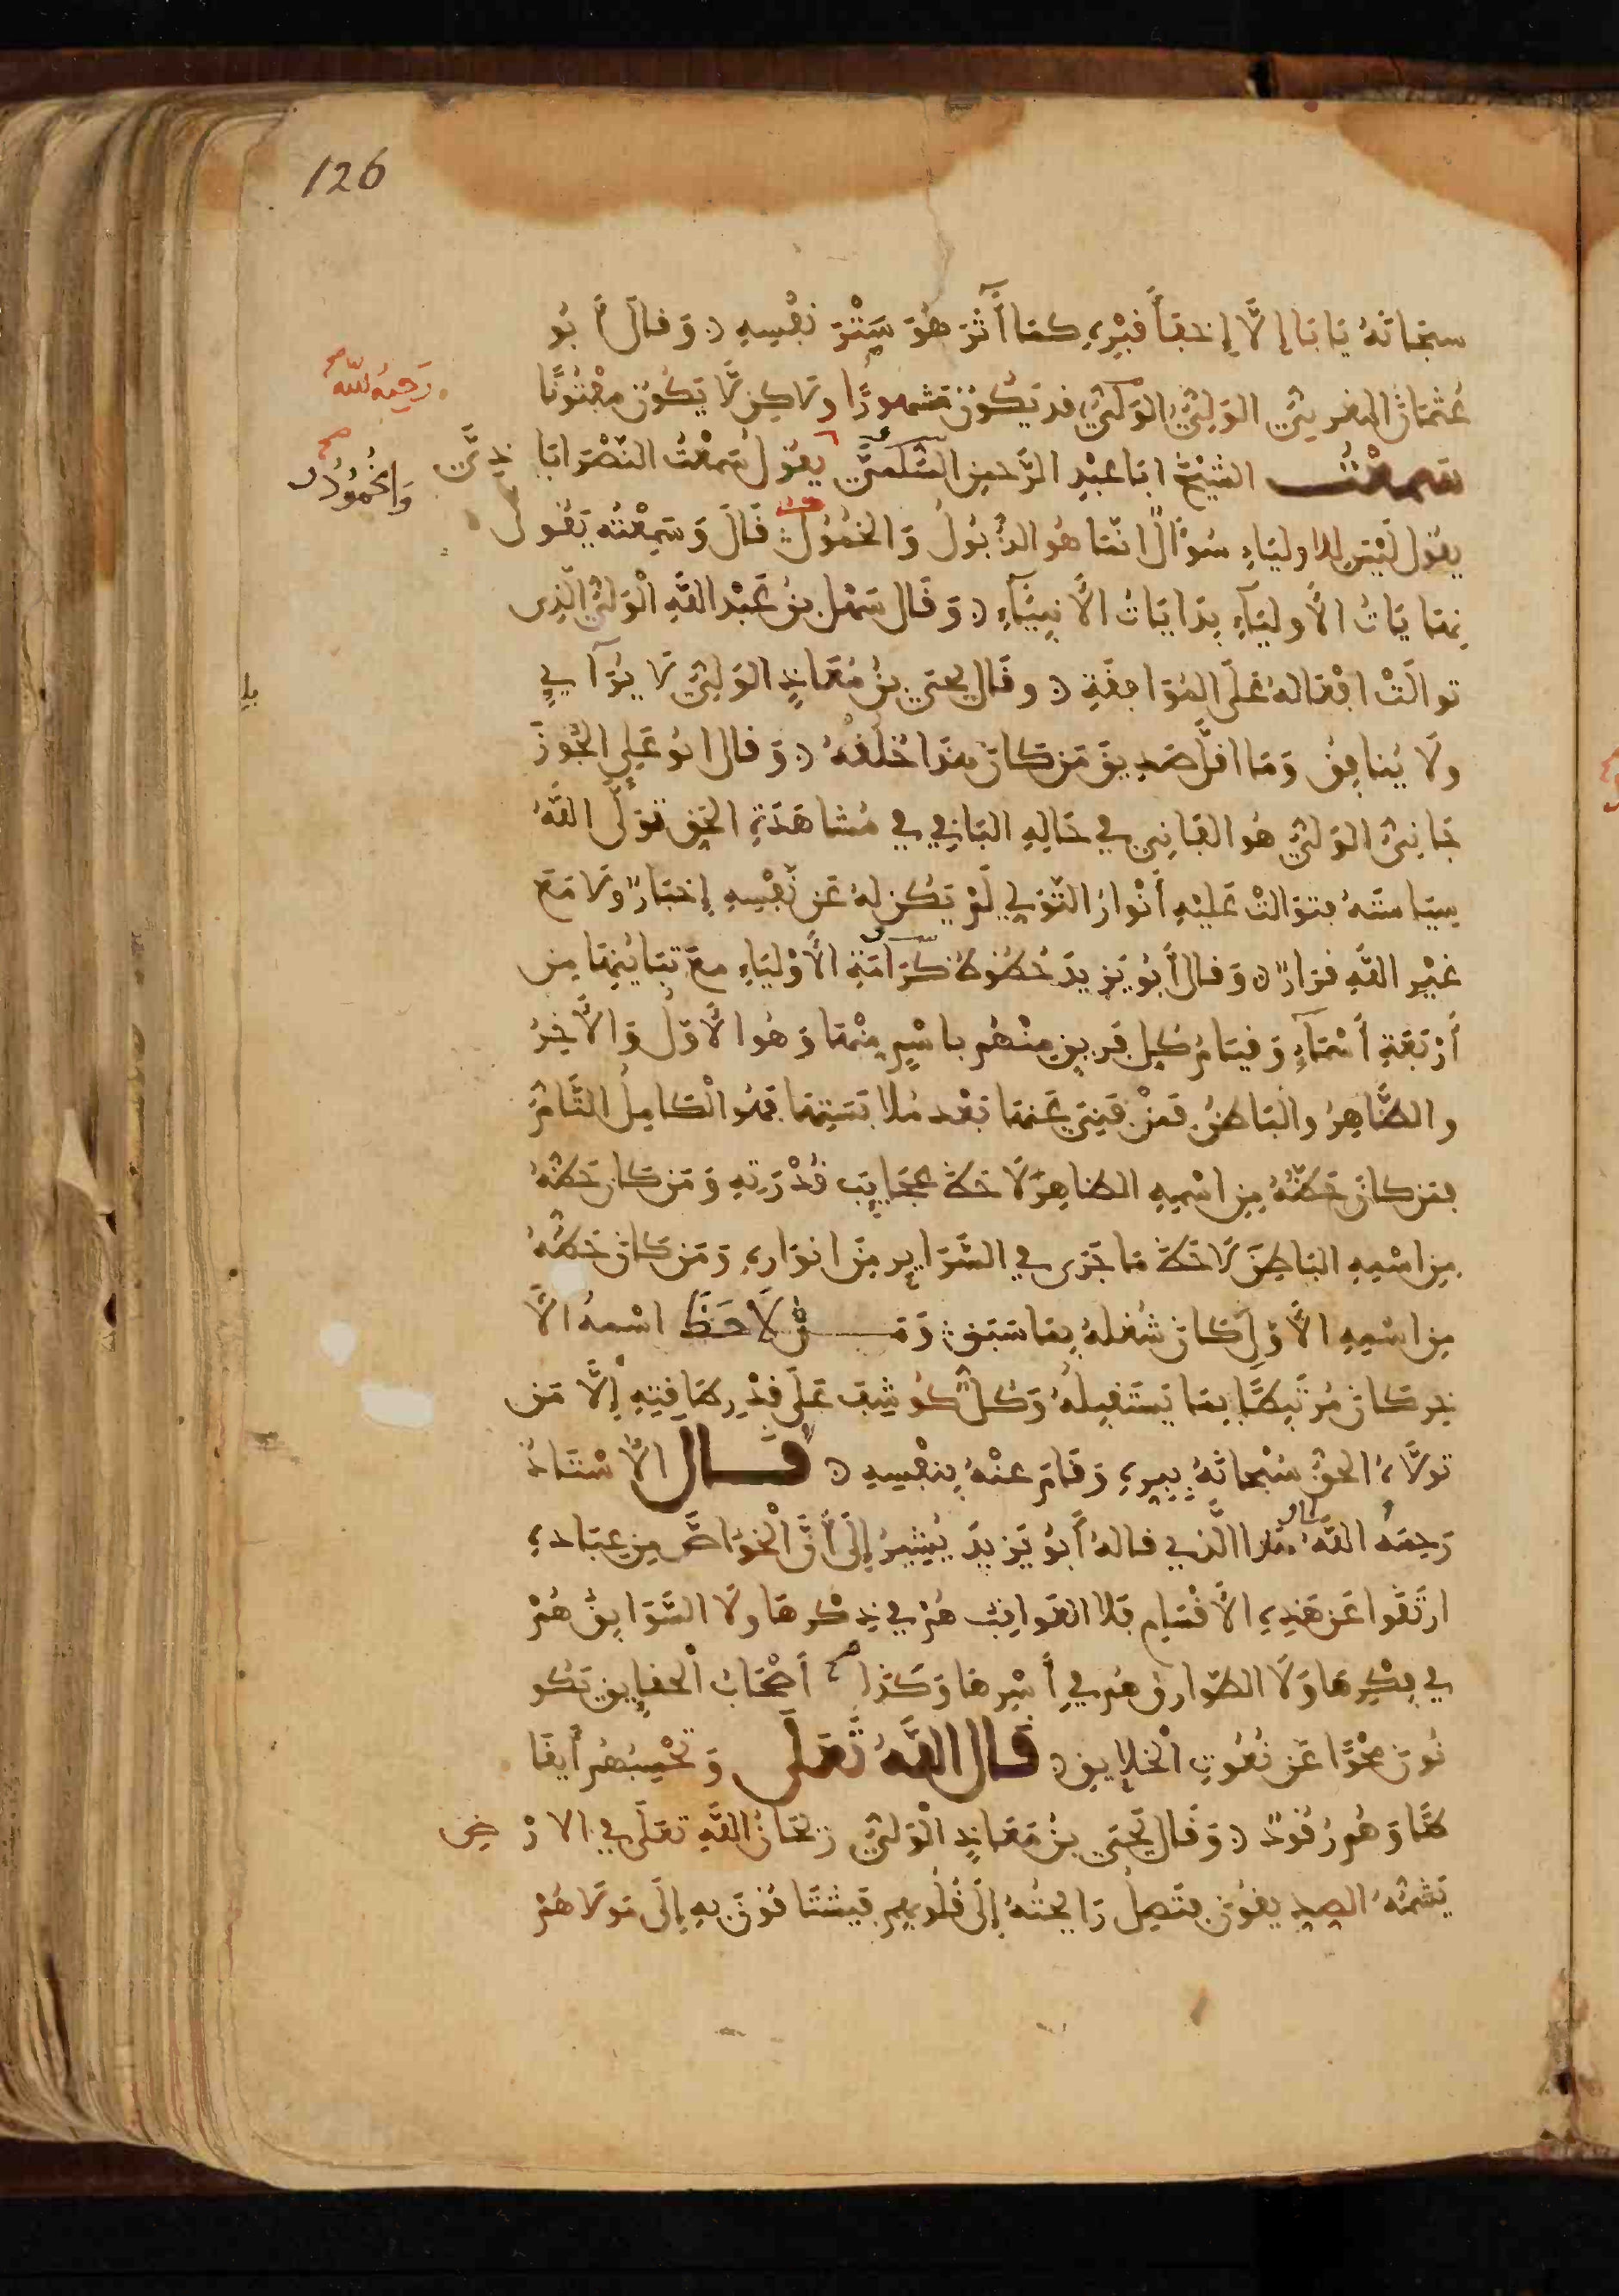 126
سبحانه يابا إلا إخفآء قبره كما آثر هو ستر نفسه وقال أبو
عثمان المغربي الولي قد يكون مشهورا ولاكن لا يكون مفتونا
رحمه الله
سمعت الشيخ ابا عبد الرحمن السلمي يقول سمعت النصراباذي
والخمود
يقول ليس للاولياء سؤال انما هو الذبول والخمول قال وسمعته يقول
نهايات الأولياء بدايات الأنبياء وقال سهل بن عبد الله الولي الذى
توالت افعاله على الموافقة وقال يحيى بن معاذ الولي لا يرآءي
ولا ينافق وما اقل صديق من كان هذا خلقه وقال ابو علي الجوز
جاني الولي هو الفاني في حاله الباقي في مشاهدة الحق تولى الله
سياسته فتوالت عليه أنوار التولي لم يكن له عن نفسه إخبار ولا مع
غير الله قرار وقال أبو يزيد حظوظ كرامة الأولياء مع تباينها من
أربعة أسماء وقيام كل فريق منهم باسم منها وهو الأول والأخر
والظاهر والباطن فمن فني عنها بعد ملابستها فهو الكامل التام
فمن كان حظه من اسمه الظاهر لاحظ عجايب قدرته ومن كان حظه
من اسمه الباطن لاحظ ما جرى في السراير من انواره ومن كان حظه
من اسمه الأول كان شغله بما سبق ومن لاحظ اسمه الأ
خر كان مرتبطا بما يستقبله وكل كوشف على قدر طاقته إلا من
تولاه الحق سبحانه ببره وقام عنه بنفسه قال الأستاذ
رحمه الله هذا الذي قاله أبو يزيد يشير إلى أن الخواص من عباده
ارتقوا عن هذه الأقسام فلا العواقب هم في ذكرها ولا السوابق هم
في فكرها ولا الطوارق هم في أسرها وكذا أصحاب الحقايق يكو
نون محوا عن نعوت الخلايق قال الله تعلى وتحسبهم أيقا
ظا وهم رقود وقال يحيى بن معاذ الولي ريحان الله تعلى في الارض
يشمه الصديقون فتصل رايحته إلى قلوبهم فيشتاقون به إلى مولاهم